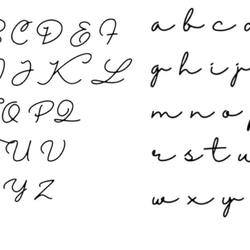 B C D E F
I J K L
O P Q
T U V
Y Z
a b c d
g h i j
m n o p
r s t u
w x y